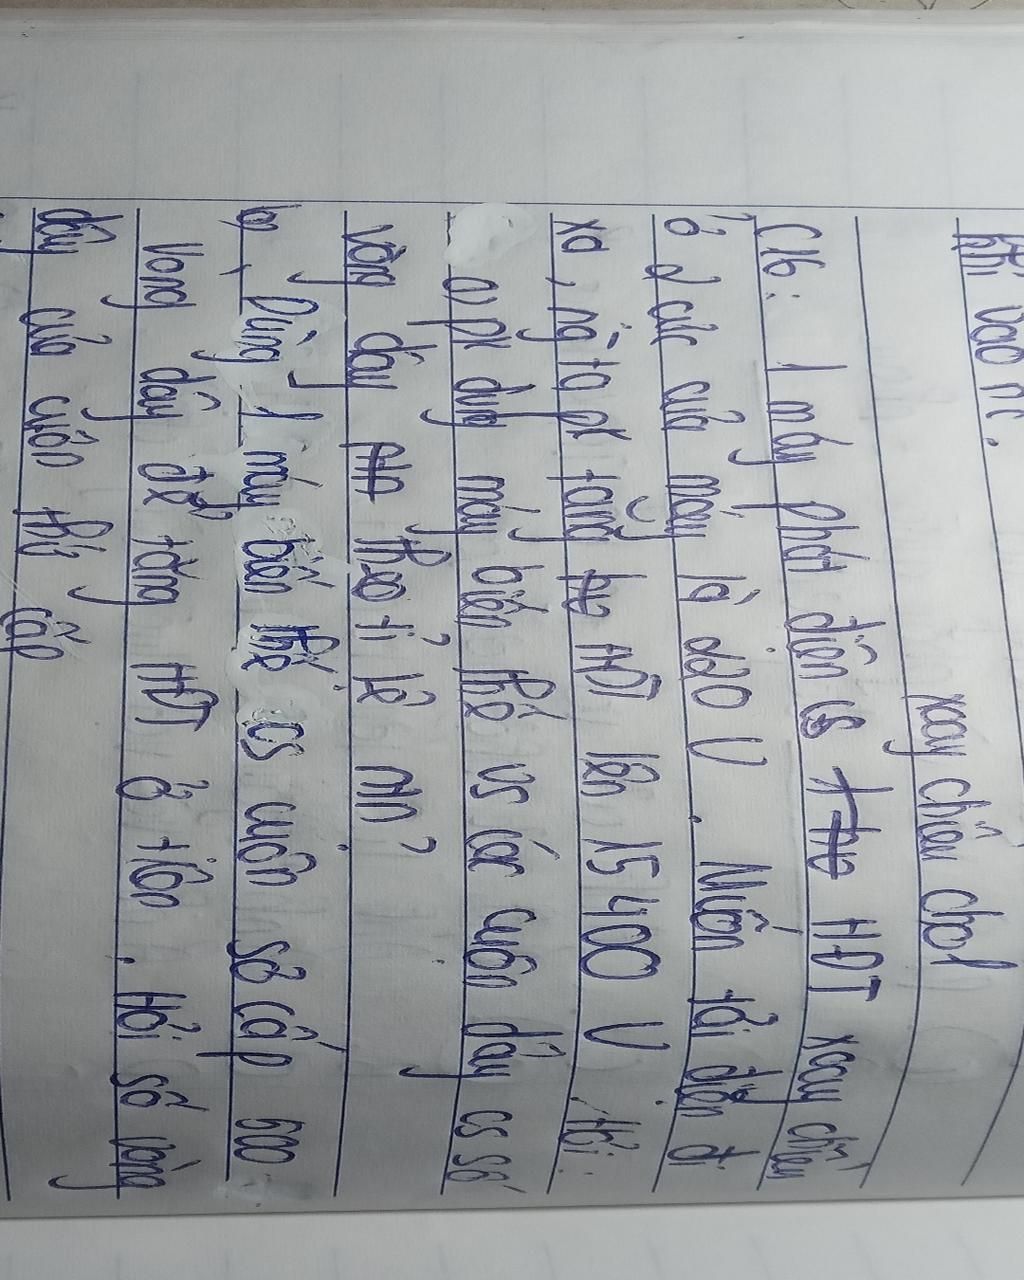 khi vào nc.
xoay chiều chol
C16: 1 máy phát điện cs HĐT xoay chiều
ở 2 cực của máy là 220 V. Muốn tải điện đi
xa, ng ta pt tăng HĐT lên 15 400 V. Hỏi:
a, pt dụng máy biến thế vs các cuộn dây cs số
vòng dây theo tỉ lệ nào?
b, Dùng 1 máy biến thế cs cuộn sơ cấp 500
Vòng dây để tăng HĐT ở trên. Hỏi số vòng
dây của cuộn thứ cấp